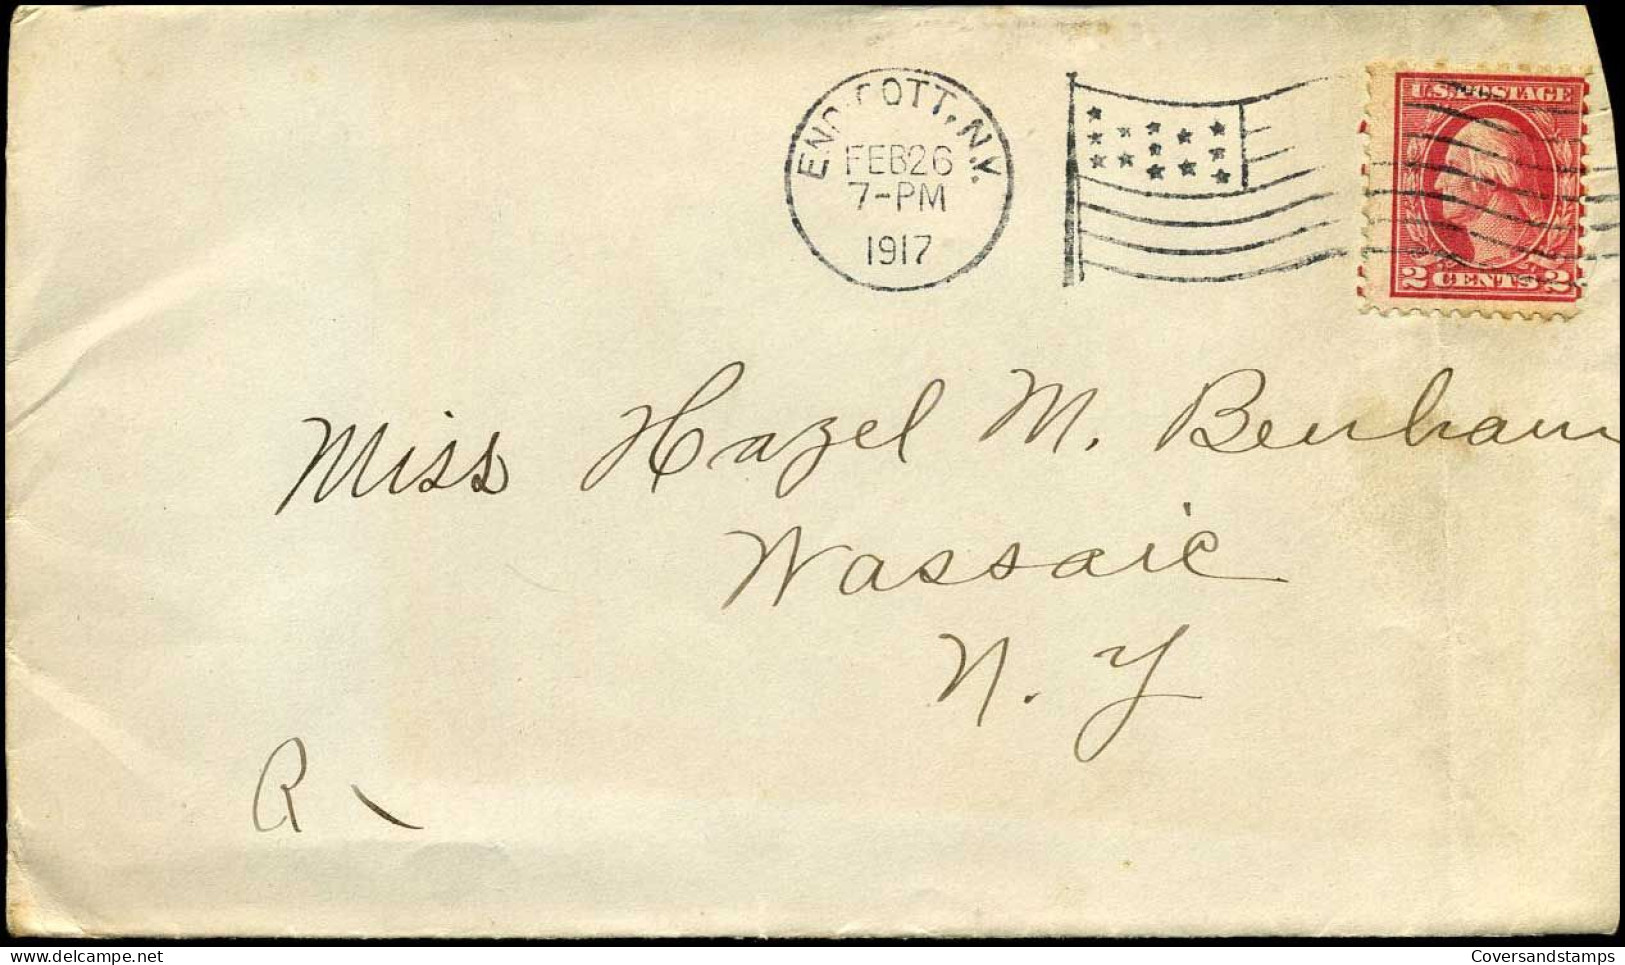 ENDICOTT, N.Y.
FEB 26
7-PM
1917
U.S. POSTAGE
2 CENTS 2
Miss Hazel M. Benham
Wassaic
N. Y
R
delcampe.net
Coversandstamps